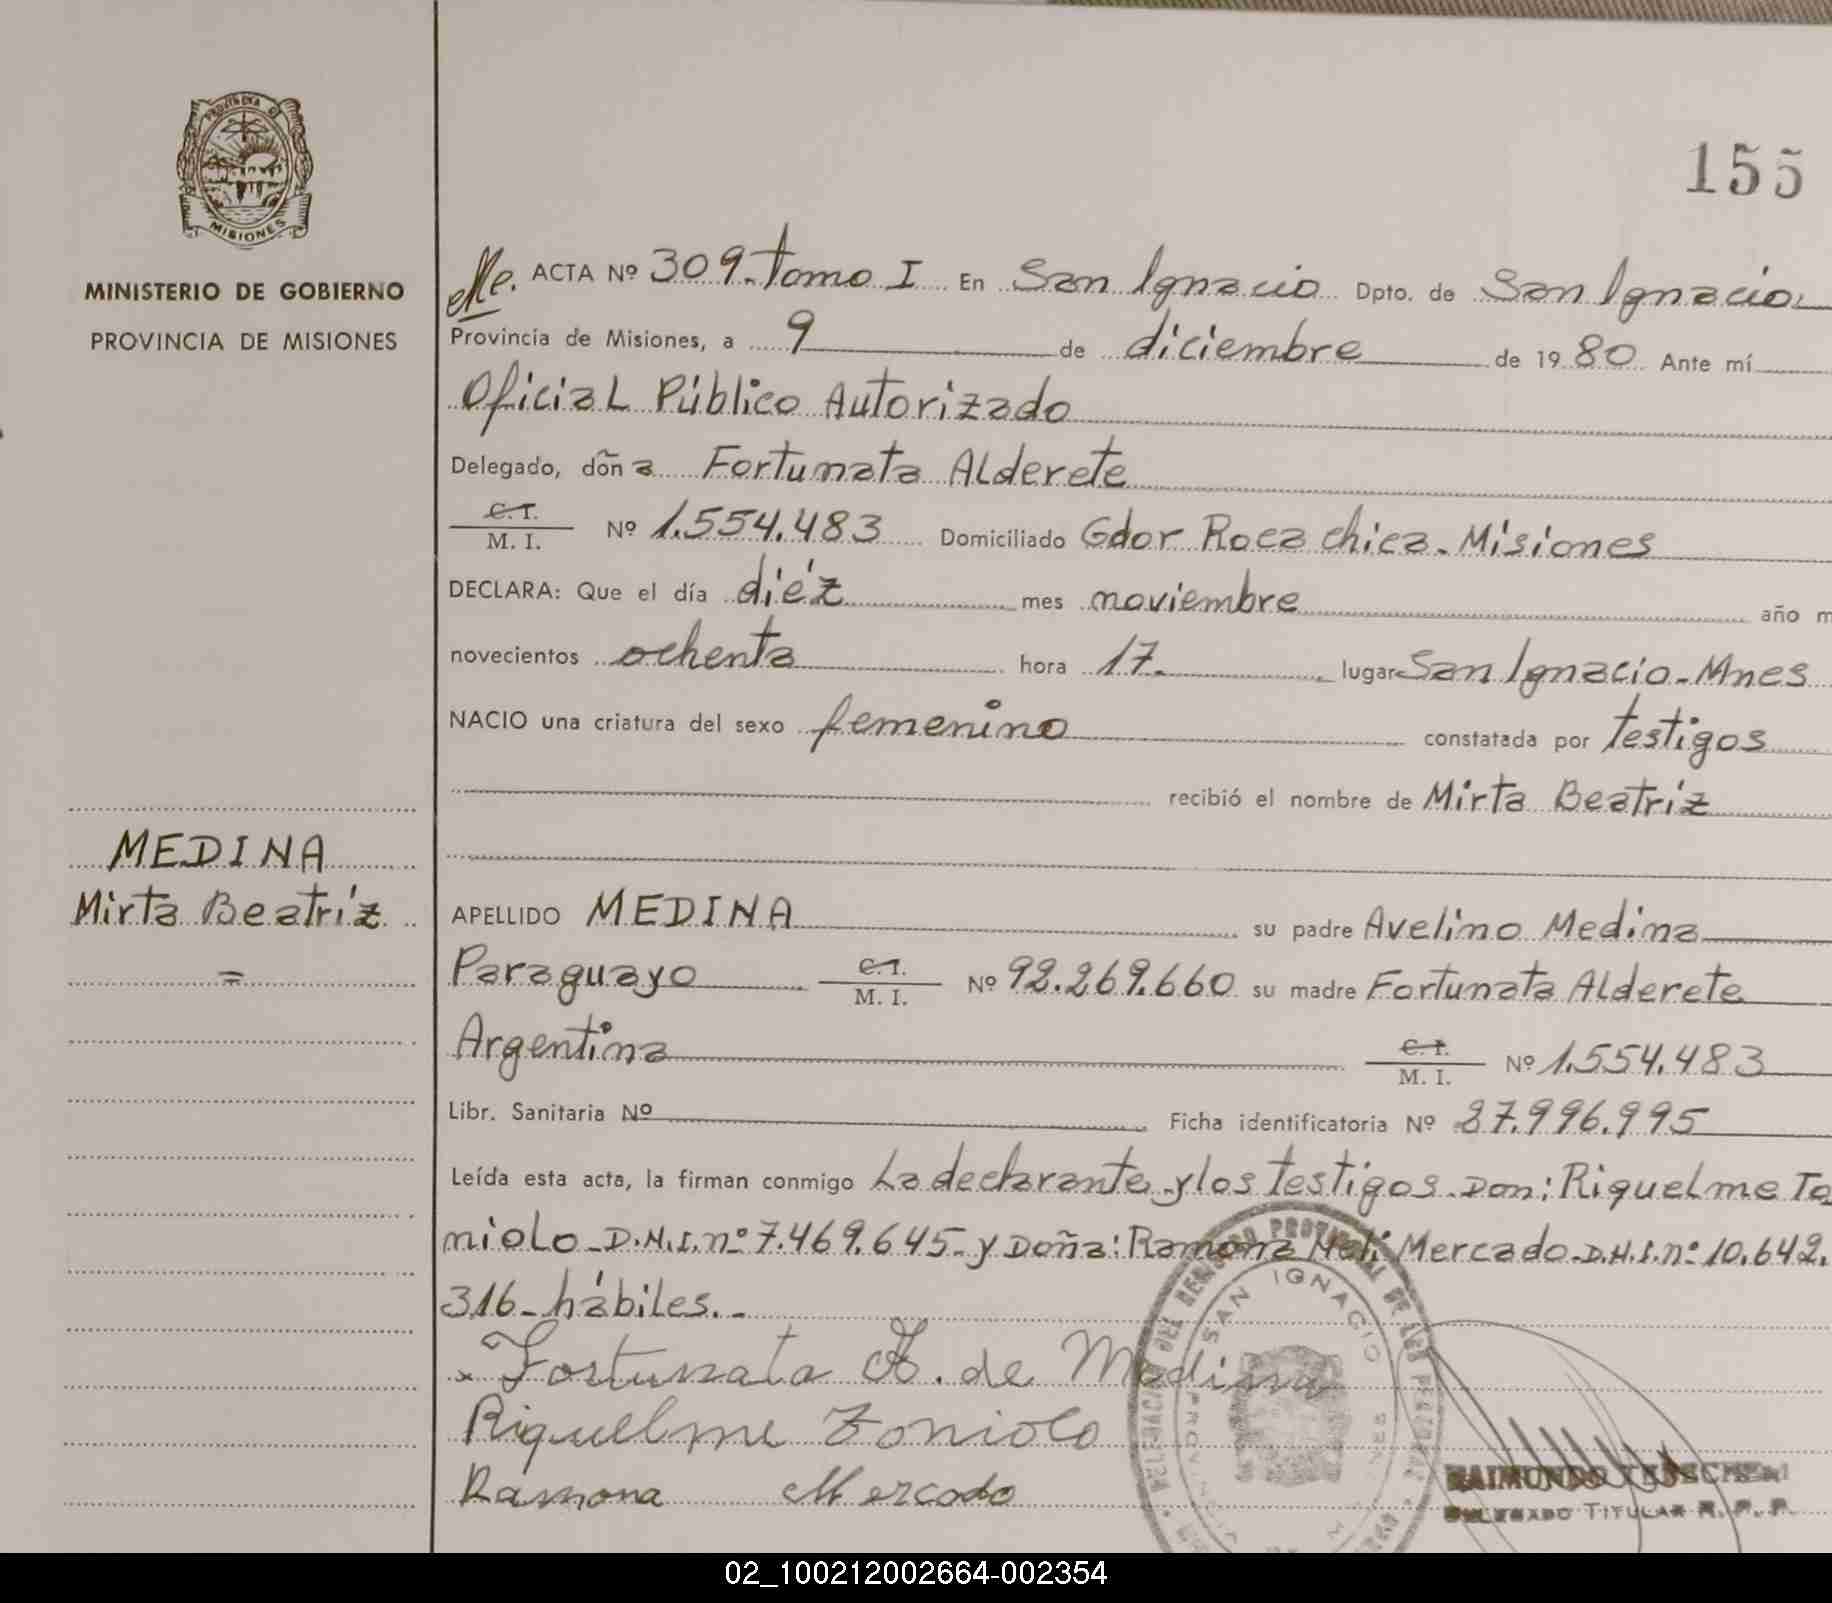 PROVINCIA D
MISIONES
MINISTERIO DE GOBIERNO
PROVINCIA DE MISIONES
MEDINA
Mirta Beatriz
=
155
ACTA Nº 309. Tomo I En San Ignacio Dpto. de San Ignacio
Provincia de Misiones, a 9 de diciembre de 1980 Ante mí
Oficial Público Autorizado
Delegado, doña Fortunata Alderete
C.I.
M. I. Nº 1.554.483 Domiciliado Gdor Roca chica. Misiones
DECLARA: Que el día diéz mes noviembre año m
novecientos ochenta hora 17. lugar San Ignacio-Mnes
NACIO una criatura del sexo femenino constatada por testigos
recibió el nombre de Mirta Beatriz
APELLIDO MEDINA su padre Avelino Medina
Paraguayo C.I. M. I. Nº 92.269.660 su madre Fortunata Alderete
Argentina C.I. M. I. Nº 1.554.483
Libr. Sanitaria Nº Ficha identificatoria Nº 27.996.995
Leída esta acta, la firman conmigo La declarante y los testigos Don: Riquelme To
niolo D.N.I. nº 7.469.645- y Doña: Ramona Neli Mercado D.N.I. nº 10.642.
316- hábiles.-
x Fortunata A. de Medina
Riquelme Toniolo
Ramona Mercado
SAN IGNACIO
RAIMUNDO
DELEGADO TITULAR R. P. P.
02_100212002664-002354